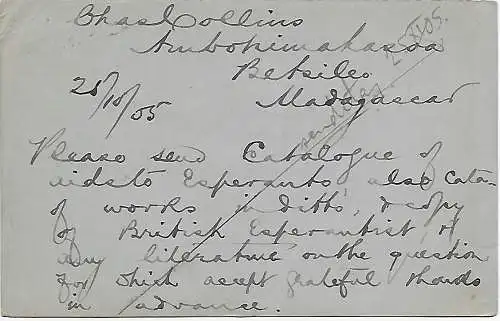 Chas Collins
Ambohimahasoa
Betsileo
Madagascar
25/10/05
sendita 25 XI 05.
Please send Catalogue of
aids to Esperanto, also Cata-
of works in ditto, & copy
of British Esperantist, &
any literature on the question
for which accept grateful thanks
in advance.